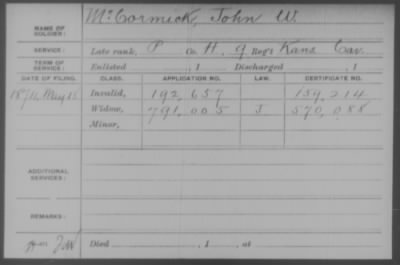 NAME OF SOLDIER: McCormick, John W.
SERVICE: Late rank, P Co. H, 9 Reg't Kans Cav.
TERM OF SERVICE: Enlisted , 1 Discharged , 1
DATE OF FILING. CLASS. APPLICATION NO. LAW. CERTIFICATE NO.
Invalid, 192,657 159,214
Widow, 791,005 J 570,088
Minor,
ADDITIONAL SERVICES:
REMARKS:
Died , 1 , at